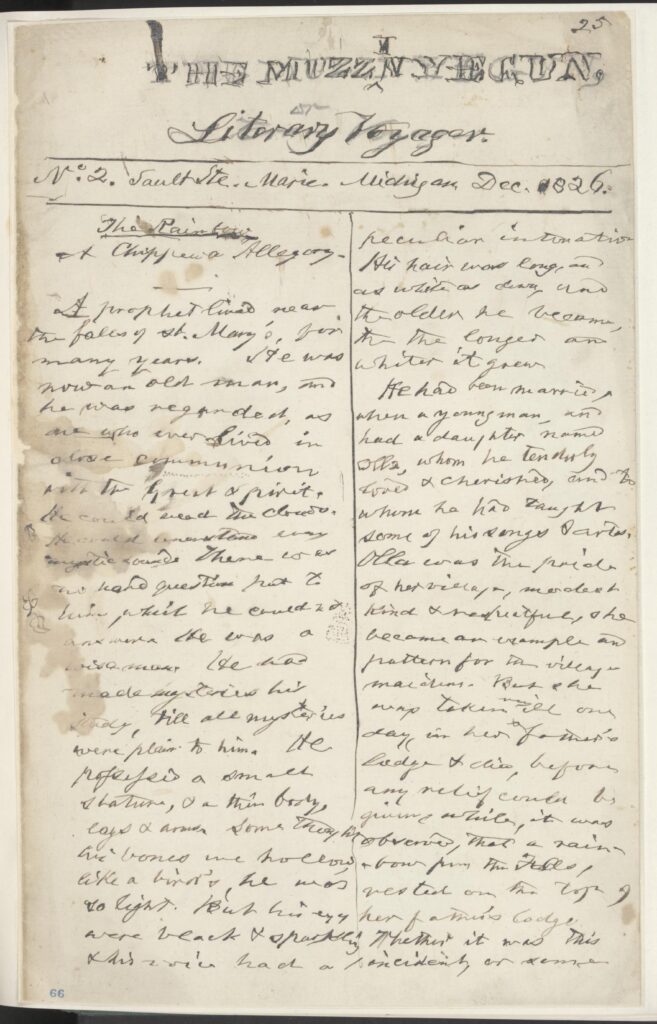 25
THE MUZZINYEGUN,
or
Literary Voyager.
No. 2. Sault Ste. Marie. Michigan, Dec. 1826.
The Rainbow
A Chippewa Allegory.
A prophet lived near
the falls of St. Mary's, for
many years. He was
now an old man, and
he was regarded, as
one who ever lived in
close communion
with the Great Spirit.
He could read the clouds.
He could understand every
mystic sound. There was
no hard question put to
him, which he could not
answer. He was a
wise man. He had
made mysteries his
study, till all mysteries
were plain to him. He
possessed a small
stature, & a thin body,
legs & arms. Some thought
his bones were hollow,
like a bird's, he was
so light. But his eyes
were black & sparkling
& his voice had a
peculiar intonation
His hair was long, and
as white as snow, and
the older he became,
the the longer and
whiter it grew
He had been married,
when a young man, and
had a daughter named
Olla, whom he tenderly
loved & cherished, and to
whom he had taught
some of his songs & arts.
Olla was the pride
of her village, modest
kind & respectful, she
became an example and
pattern for the village
maidens. But she
was taken ill one
day, in her father's
lodge & died, before
any relief could be
given, while, it was
observed, that a rain-
-bow from the Falls,
rested on the top of
her father's lodge.
Whether it was this
incident, or some
66